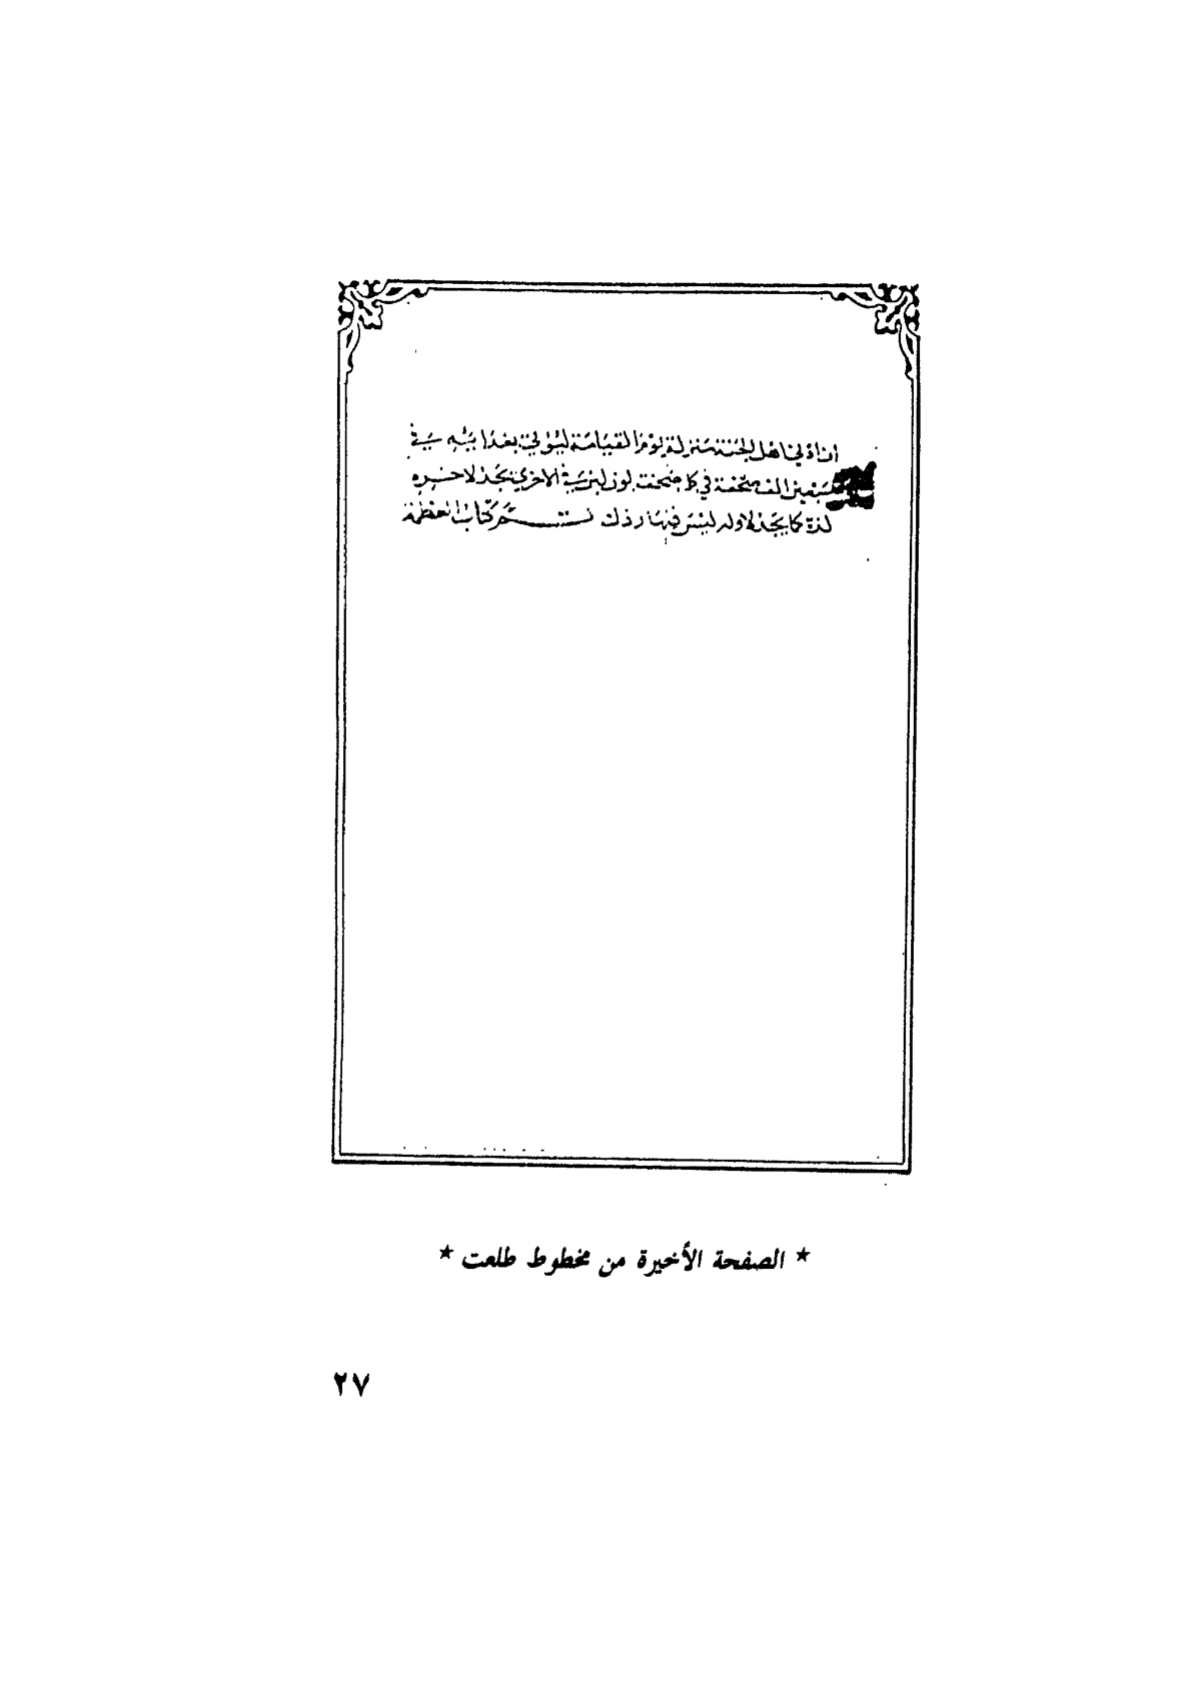 ان ادنى اهل الجنة منزلة يوم القيامة ليؤتى بغدايه في
سبعين الف صحفة في كل صحفة لون ليس في الاخرى يجد لاخره
لذة كما يجد لاوله ليس فيها رذل تـــم كتاب العظمة
* الصفحة الأخيرة من مخطوط طلعت *
٢٧